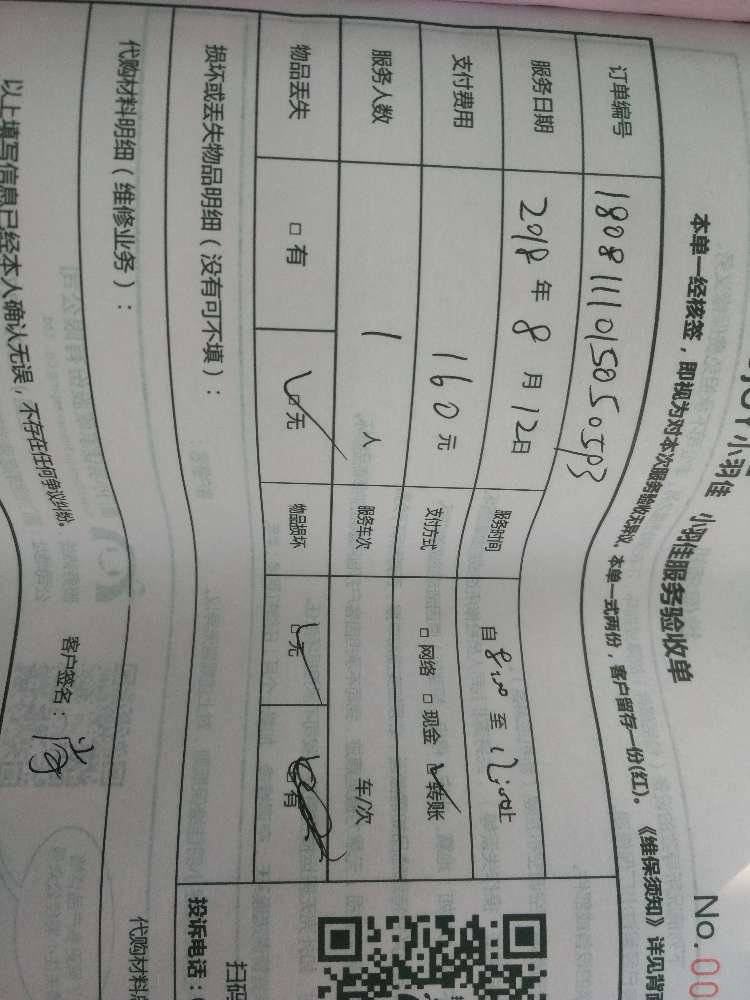 小羽佳 小羽佳服务验收单
No.00
本单一经核签，即视为对本次服务验收无异议。本单一式两份，客户留存一份(红)。《维保须知》详见背
订单编号 18081111015050503
服务日期 2018年8月12日 服务时间 自8:00至12:00止
支付费用 160元 支付方式 □网络 □现金 ☑转账
服务人数 1人 服务车次 车/次
物品丢失 □有 ☑无 物品损坏 ☑无 □有
损坏或丢失物品明细（没有可不填）：
投诉电话：
扫码
代购材料明细（维修业务）：
代购材料
以上填写信息已经本人确认无误，不存在任何争议纠纷。
客户签名：